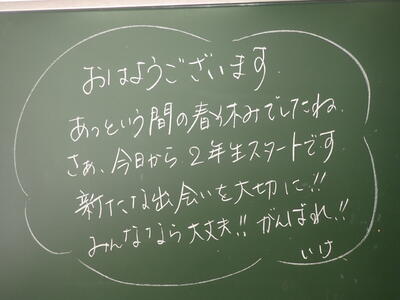 おはようございます.
あっという間の春休みでしたね.
さぁ、今日から2年生スタートです
新たな出会いを大切に!!
みんななら大丈夫!! がんばれ!!
いけ